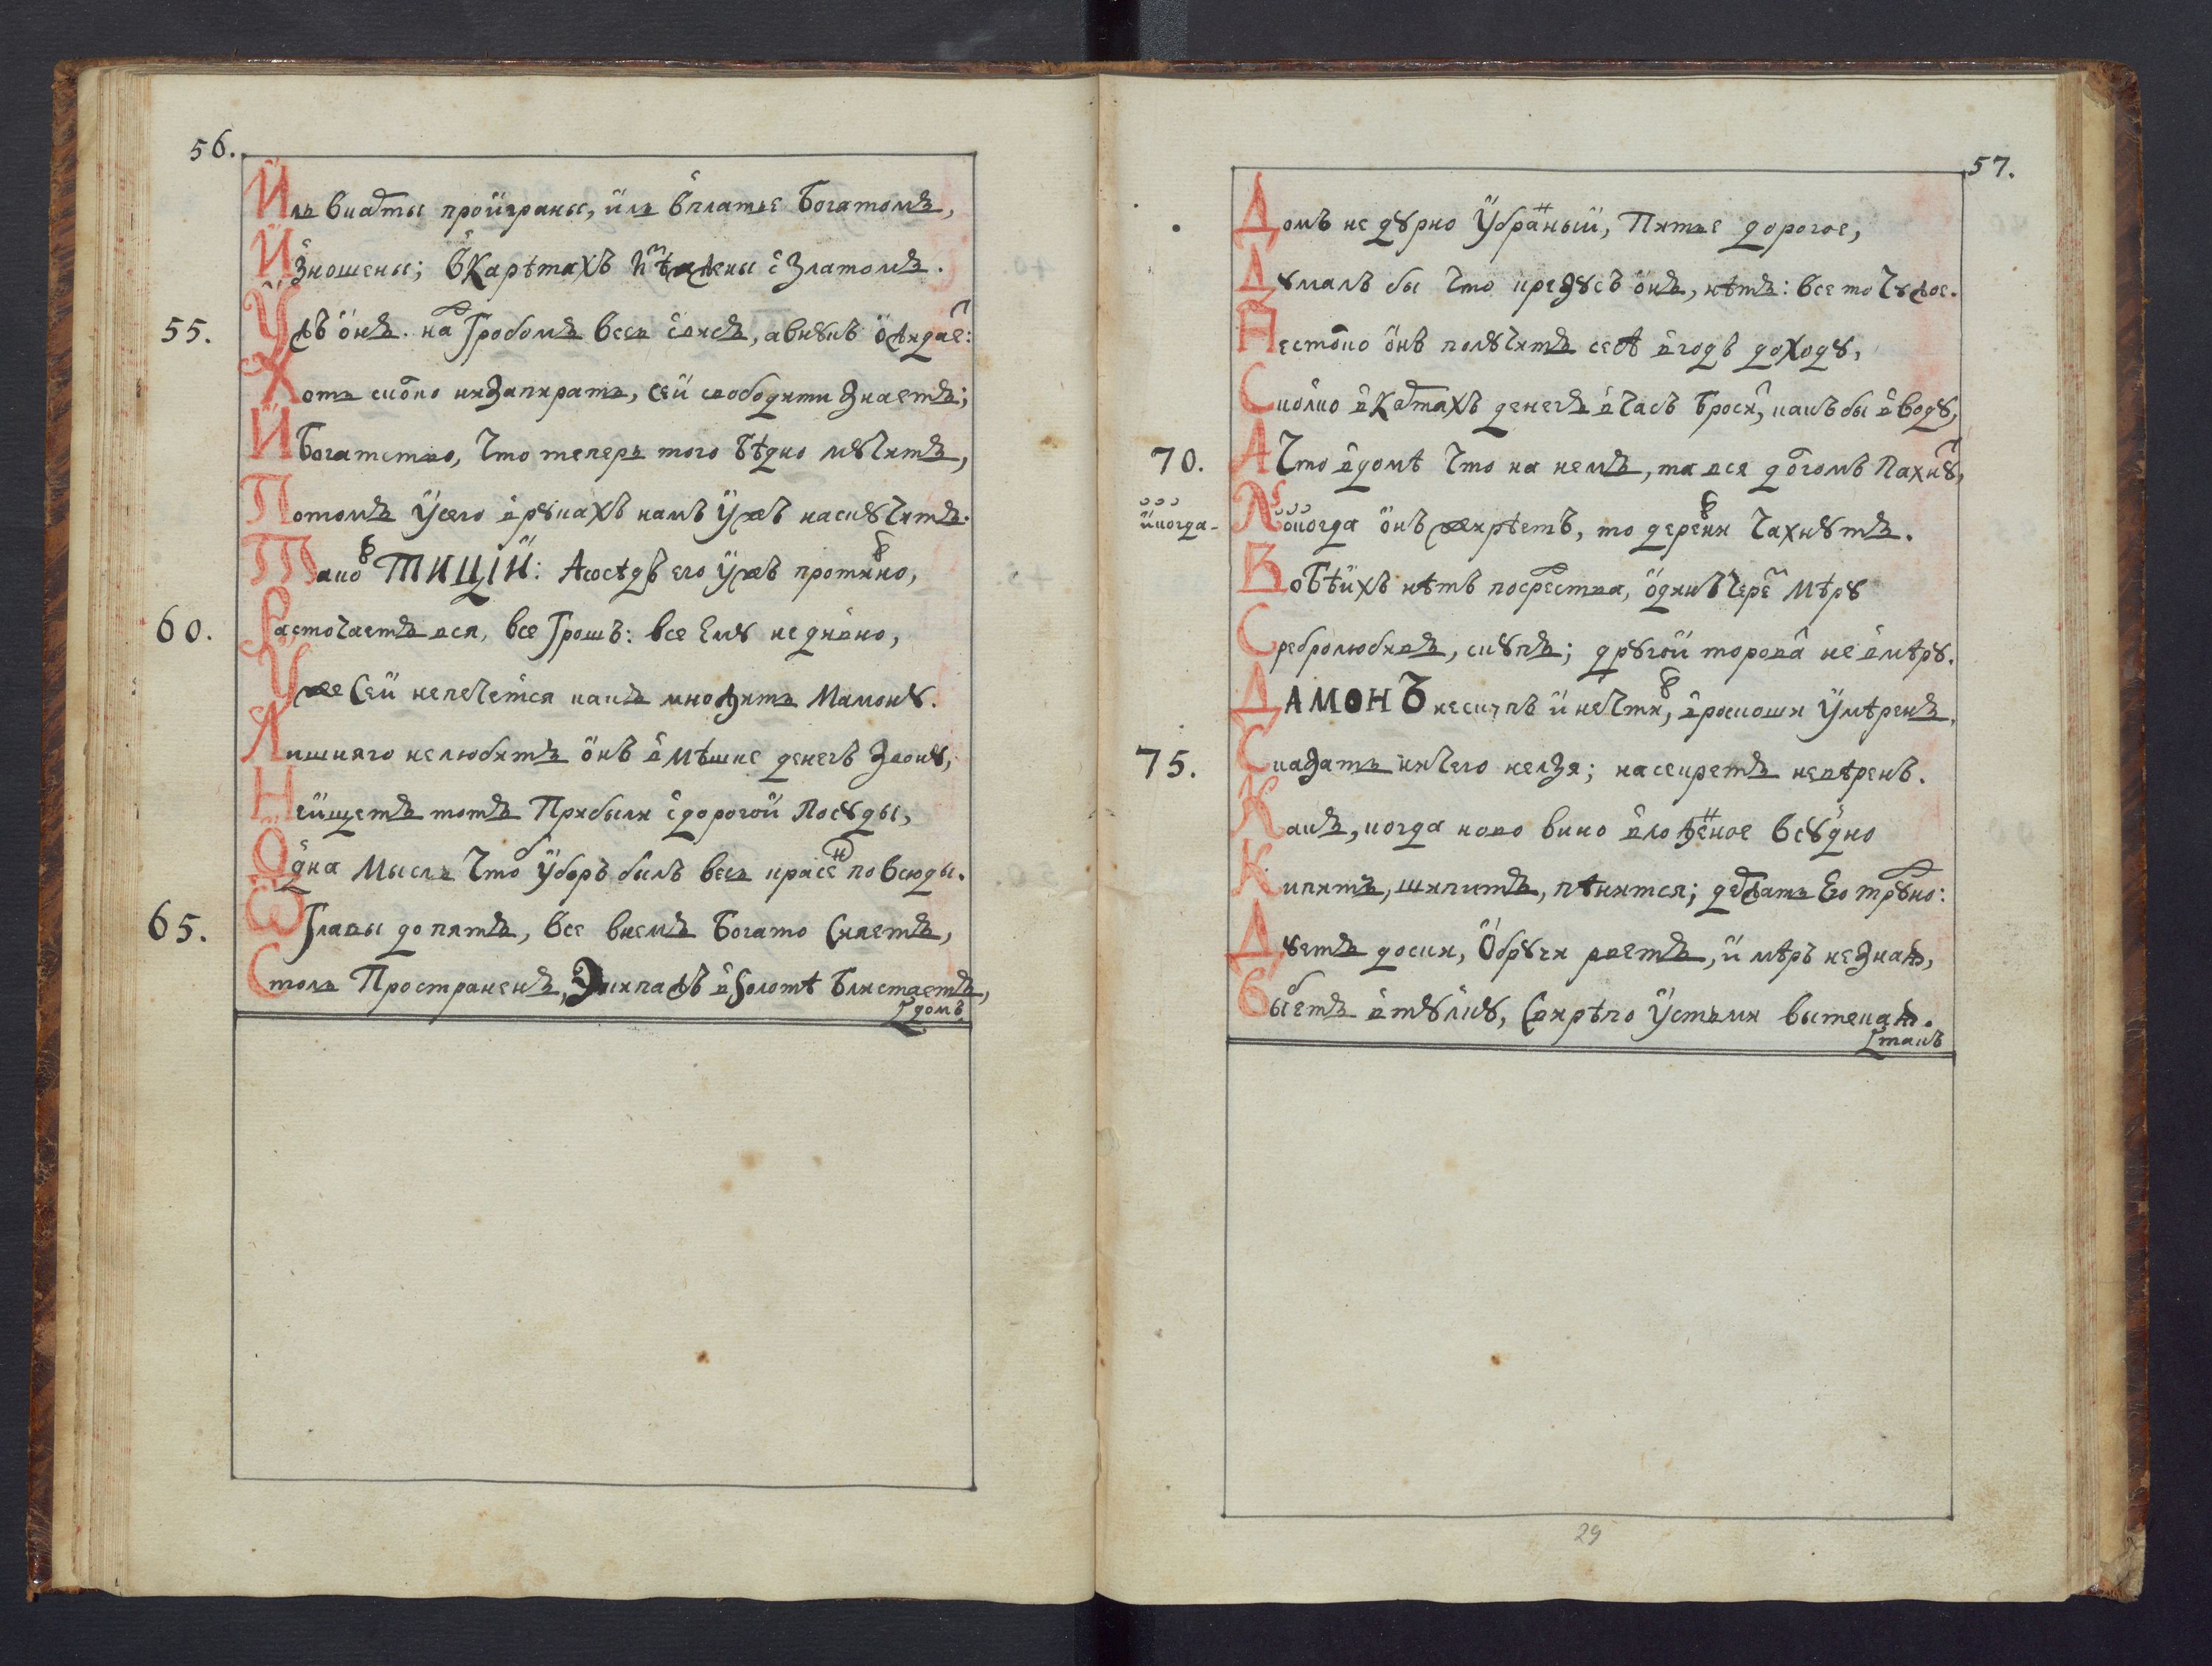 56.
Иль вкарты проиграны, иль в платье богатомъ,
Изношены; в каретахъ изъѣждены с златомъ.
55. Ужъ онъ надъ гробомъ весь свисъ, а внукъ ожидаетъ:
Хоть сколко ни запирать, сей свободити знаетъ;
И богатство, что теперь того бѣдно мучитъ,
Потомъ у сего в рукахъ какъ ужъ наскучитъ.
Таковъ ТИЦІЙ: А сосѣдъ его ужъ противно,
60. Расточаетъ вся, все грошъ: все ему не дивно,
Уже сей не печется какъ множить мамону.
Лишняго не любитъ онъ в мѣшке денегъ звону,
Не ищетъ тотъ прибыли с дорогой посуды,
Одна мысль чтобъ уборъ былъ весь красенъ повсюды.
65. Ѿ главы до пятъ, все в немъ богато сияетъ,
Столь пространенъ, Экипажъ в золотѣ блистаетъ,
домъ
57.
Домъ не дурно убранный, питье дорогое,
Думалъ бы что крезусъ онъ, нѣтъ: все то чужое.
Не столко онъ получитъ себѣ в годъ доходу,
Сколко в картахъ денегъ в часъ броситъ, какъ бы в воду,
70. А что в домѣ что на немъ, та вся долгомъ пахнутъ,
инкогда
онкогда онъ жирѣетъ, то деревни чахнутъ.
В обѣихъ нѣтъ посредства, одинъ чрезъ мѣру
Сребролюбивъ, скупъ; другой тороватъ не в мѣру.
ДАМОНЪ не скупъ и не чтивъ, в роскоши умѣренъ,
75. Сказать ничего нелзя; на секретъ невѣренъ.
Какъ, когда ново вино вложенное в судно
Кипитъ, шипитъ, пѣнится; держать его трудно:
Дуетъ доски, обручи рветъ, и мѣръ не зная,
Бьетъ втулку, свирѣпо устьми вытекая.
такъ
29